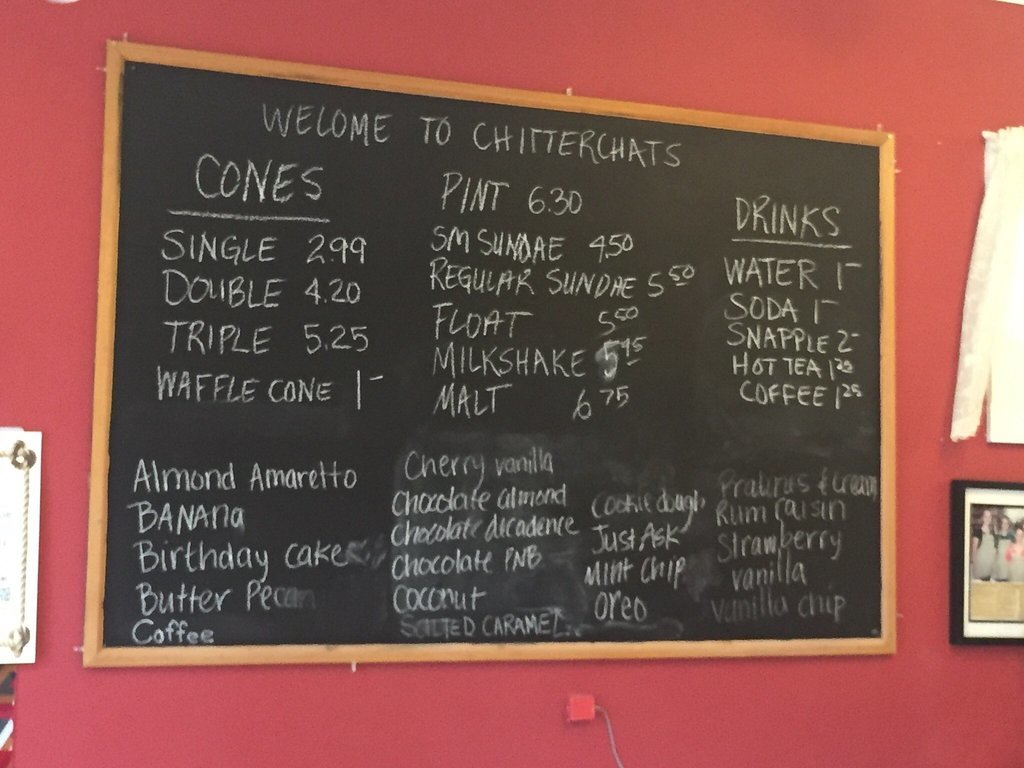 WELOME TO CHITTERCHATS
CONES
SINGLE 2.99
DOUBLE 4.20
TRIPLE 5.25
WAFFLE CONE 1-
PINT 6.30
SM SUNDAE 4.50
REGULAR SUNDAE 5 50
FLOAT 5 50
MILKSHAKE 5 95
MALT 6 75
DRINKS
WATER 1-
SODA 1-
SNAPPLE 2-
HOT TEA 1 25
COFFEE 1 25
Almond Amaretto
BANANa
Birthday cake
Butter Pecan
Coffee
Cherry vanilla
Chocolate almond
Chocolate decadence
Chocolate PNB
Coconut
SALTED CARAMEL
Cookie dough
Just Ask
Mint chip
Oreo
Pralines & cream
Rum raisin
Strawberry
vanilla
vanilla chip